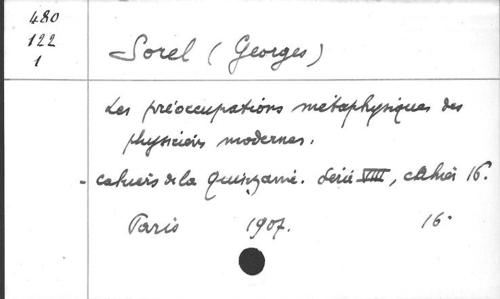 480
122
1
Sorel (Georges)
Les préoccupations métaphysiques des
physiciens modernes.
- cahiers de la Quinzaine. Série VIII, cahier 16.
Paris 1907. 16°